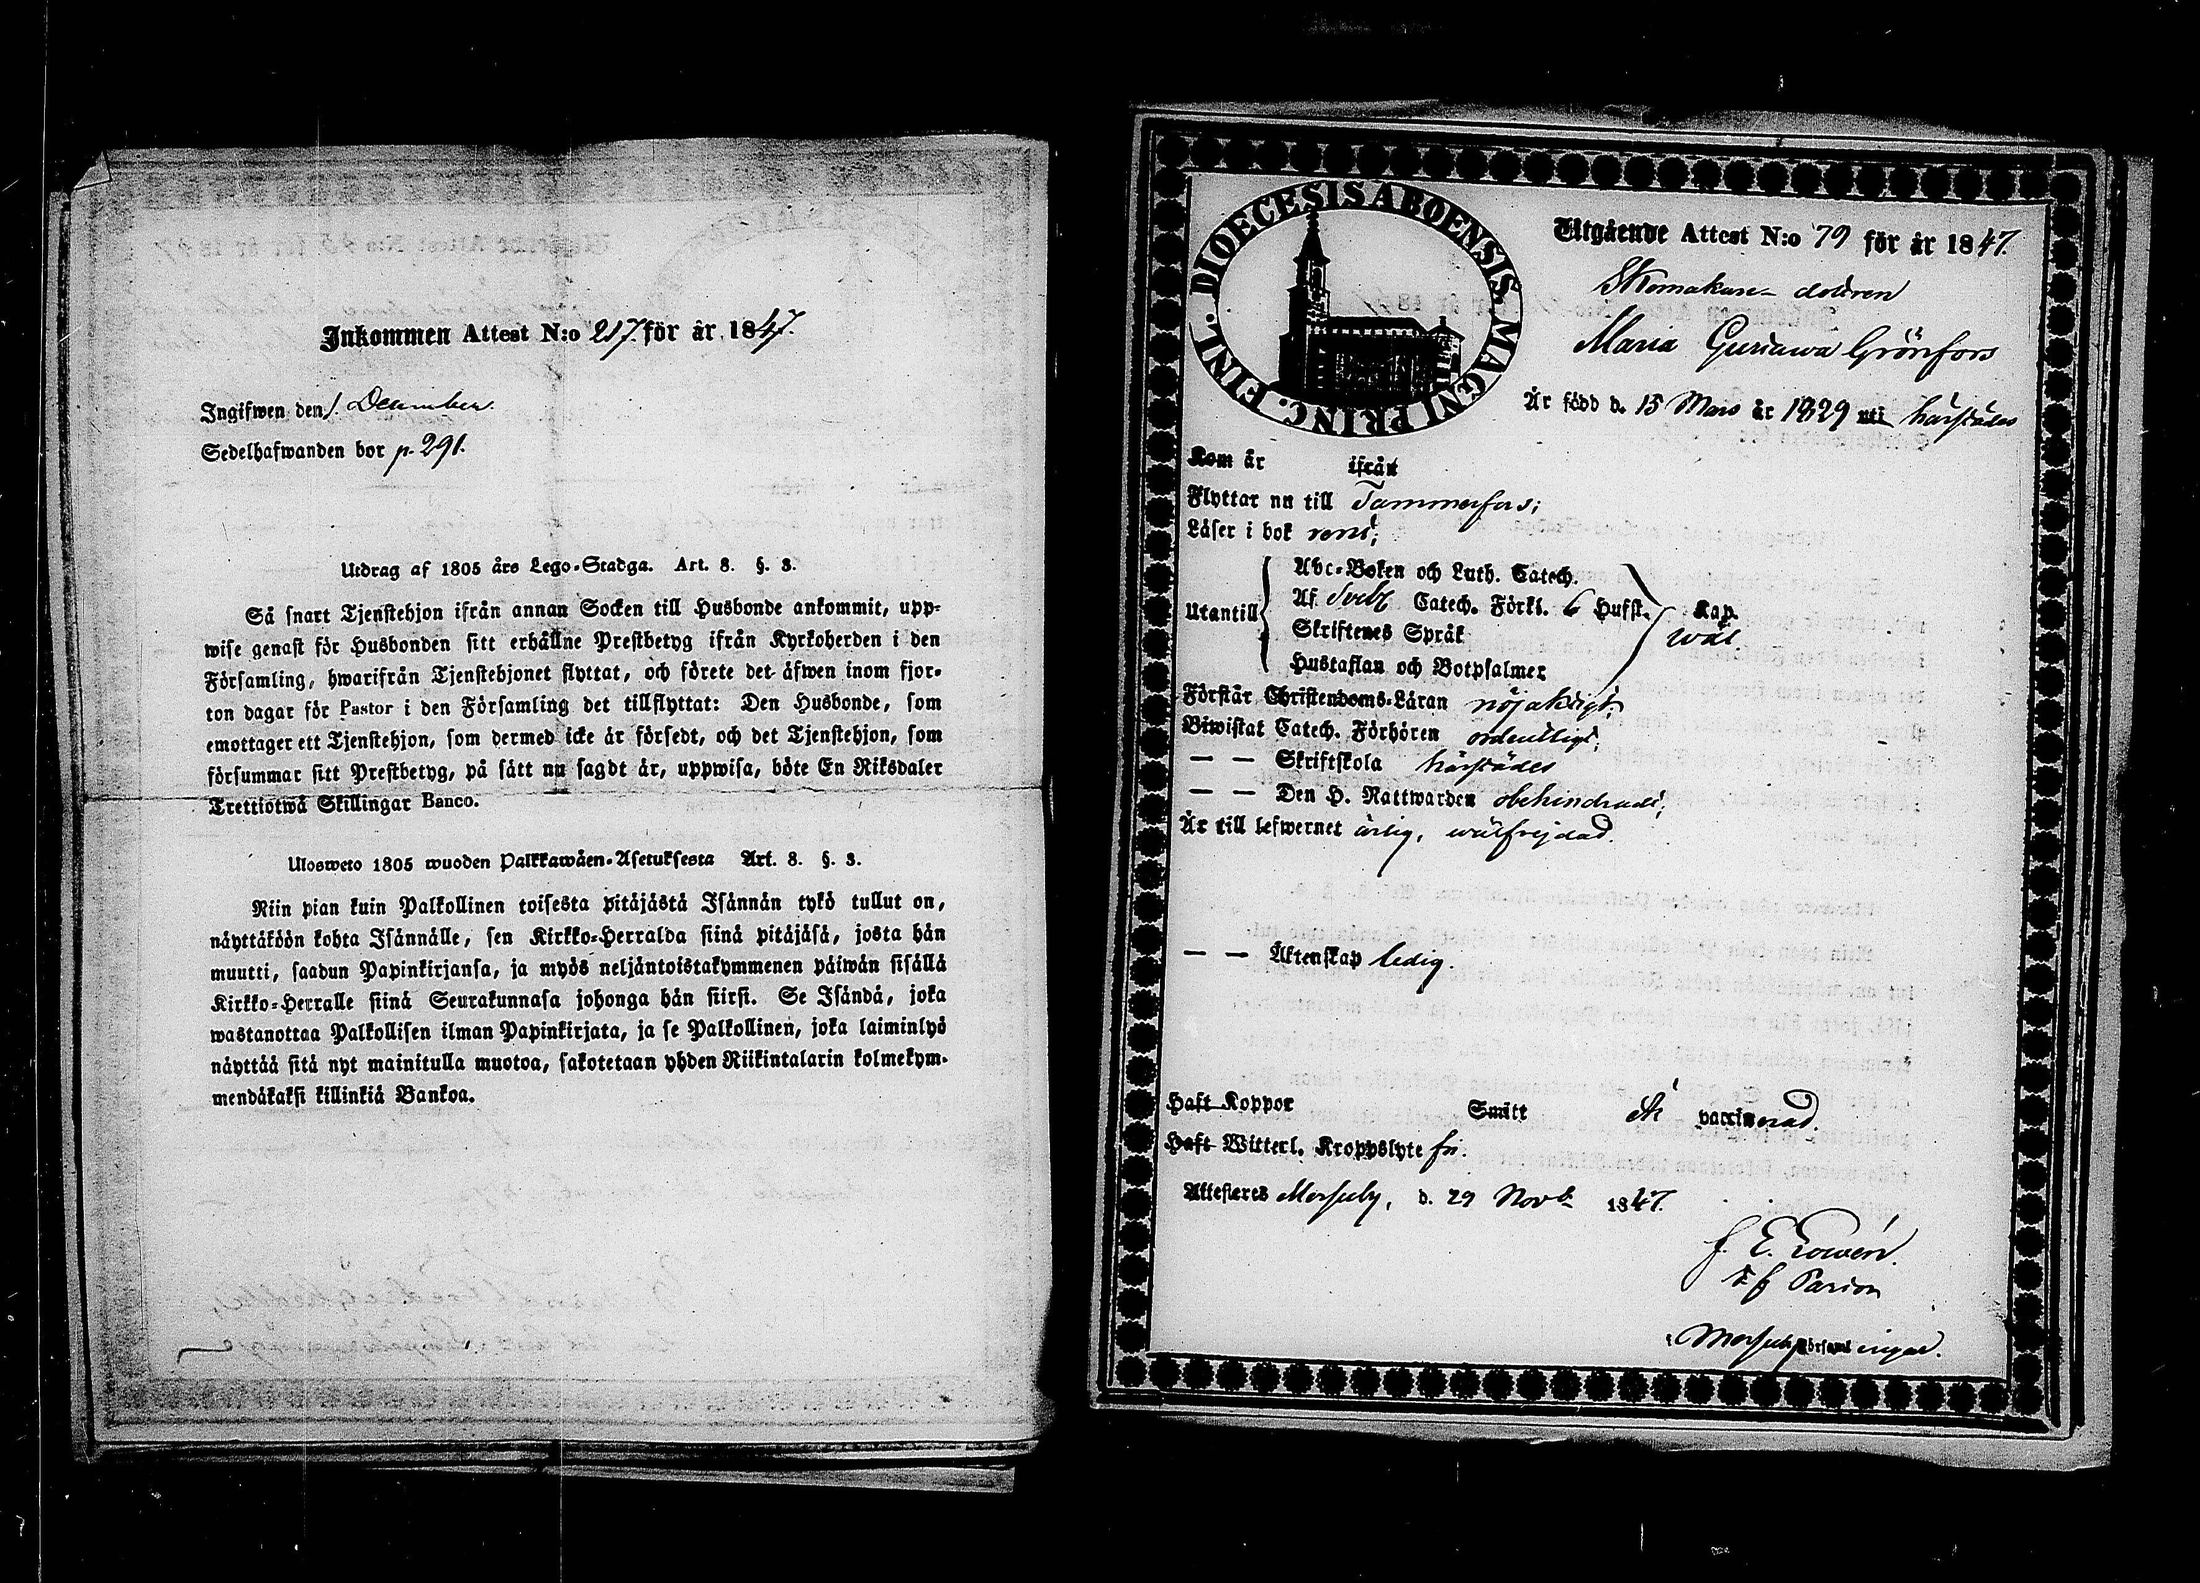 Inkommen Attest N:o 217. för år 1847.
Ingifwen den 1. December.
Sedelhafwanden bor p. 291.
Utdrag af 1805 års Lego-Stadga. Art. 8. §. 3.
Så snart Tjenstehjon ifrån annan Socken till Husbonde ankommit, upp-
wise genast för Husbonden sitt erhållne Prestbetyg ifrån Kyrkoherden i den
Församling, hwarifrån Tjenstehjonet flyttat, och förete det äfwen inom fjor-
ton dagar för Pastor i den Församling det tillflyttat: Den Husbonde, som
emottager ett Tjenstehjon, som dermed icke är försedt, och det Tjenstehjon, som
försummar sitt Prestbetyg, på sätt nu sagdt är, uppwisa, böte En Riksdaler
Trettiotwå Skillingar Banco.
Ulosweto 1805 wuoden Palkkawäen-Asetuksesta Art. 8. §. 3.
Niin pian kuin Palkollinen toisesta pitäjästä Isännän tykö tullut on,
näyttäköön kohta Isännälle, sen Kirkko-Herralda siinä pitäjäsä, josta hän
muutti, saadun Papinkirjansa, ja myös neljäntoistakymmenen päiwän sisällä
Kirkko-Herralle siinä Seurakunnasa johonga hän siirsi. Se Isändä, joka
wastanottaa Palkollisen ilman Papinkirjata, ja se Palkollinen, joka laiminlyö
näyttää sitä nyt mainitulla muotoa, sakotetaan yhden Riikintalarin kolmekym-
mendäkaksi killinkiä Bankoa.
DIOECESIS ABOENSIS. MAGNI PRINC. FINL.
Utgående Attest N:o 79 för år 1847.
Skomakare-dottren
Maria Gustawa Grönfors
Är född d. 15 Mars år 1829 uti härstädes
Kom år ifrån
Flyttar nu till Tammerfors;
Läser i bok rent;
Utantill
Abc-Boken och Luth. Catech.
Af Sveb. Catech. Förkl. 6 Hufst. Kap.
Skriftenes Språk wäl.
Hustaflan och Botpsalmer
Förstår Christendoms-Läran nöjaktigt;
Biwistat Catech. Förhören ordentligt;
— — Skriftskola härstädes
— — Den H. Nattwarden obehindradt;
Är till lefwernet ärlig, wälfrejdad.
— — Äktenskap ledig.
Haft Koppor Smitt är vaccinerad.
Haft Witterl. Kroppslyte fri.
Attesteras Mersuby, d. 29 Novb. 1847.
T f Pastor